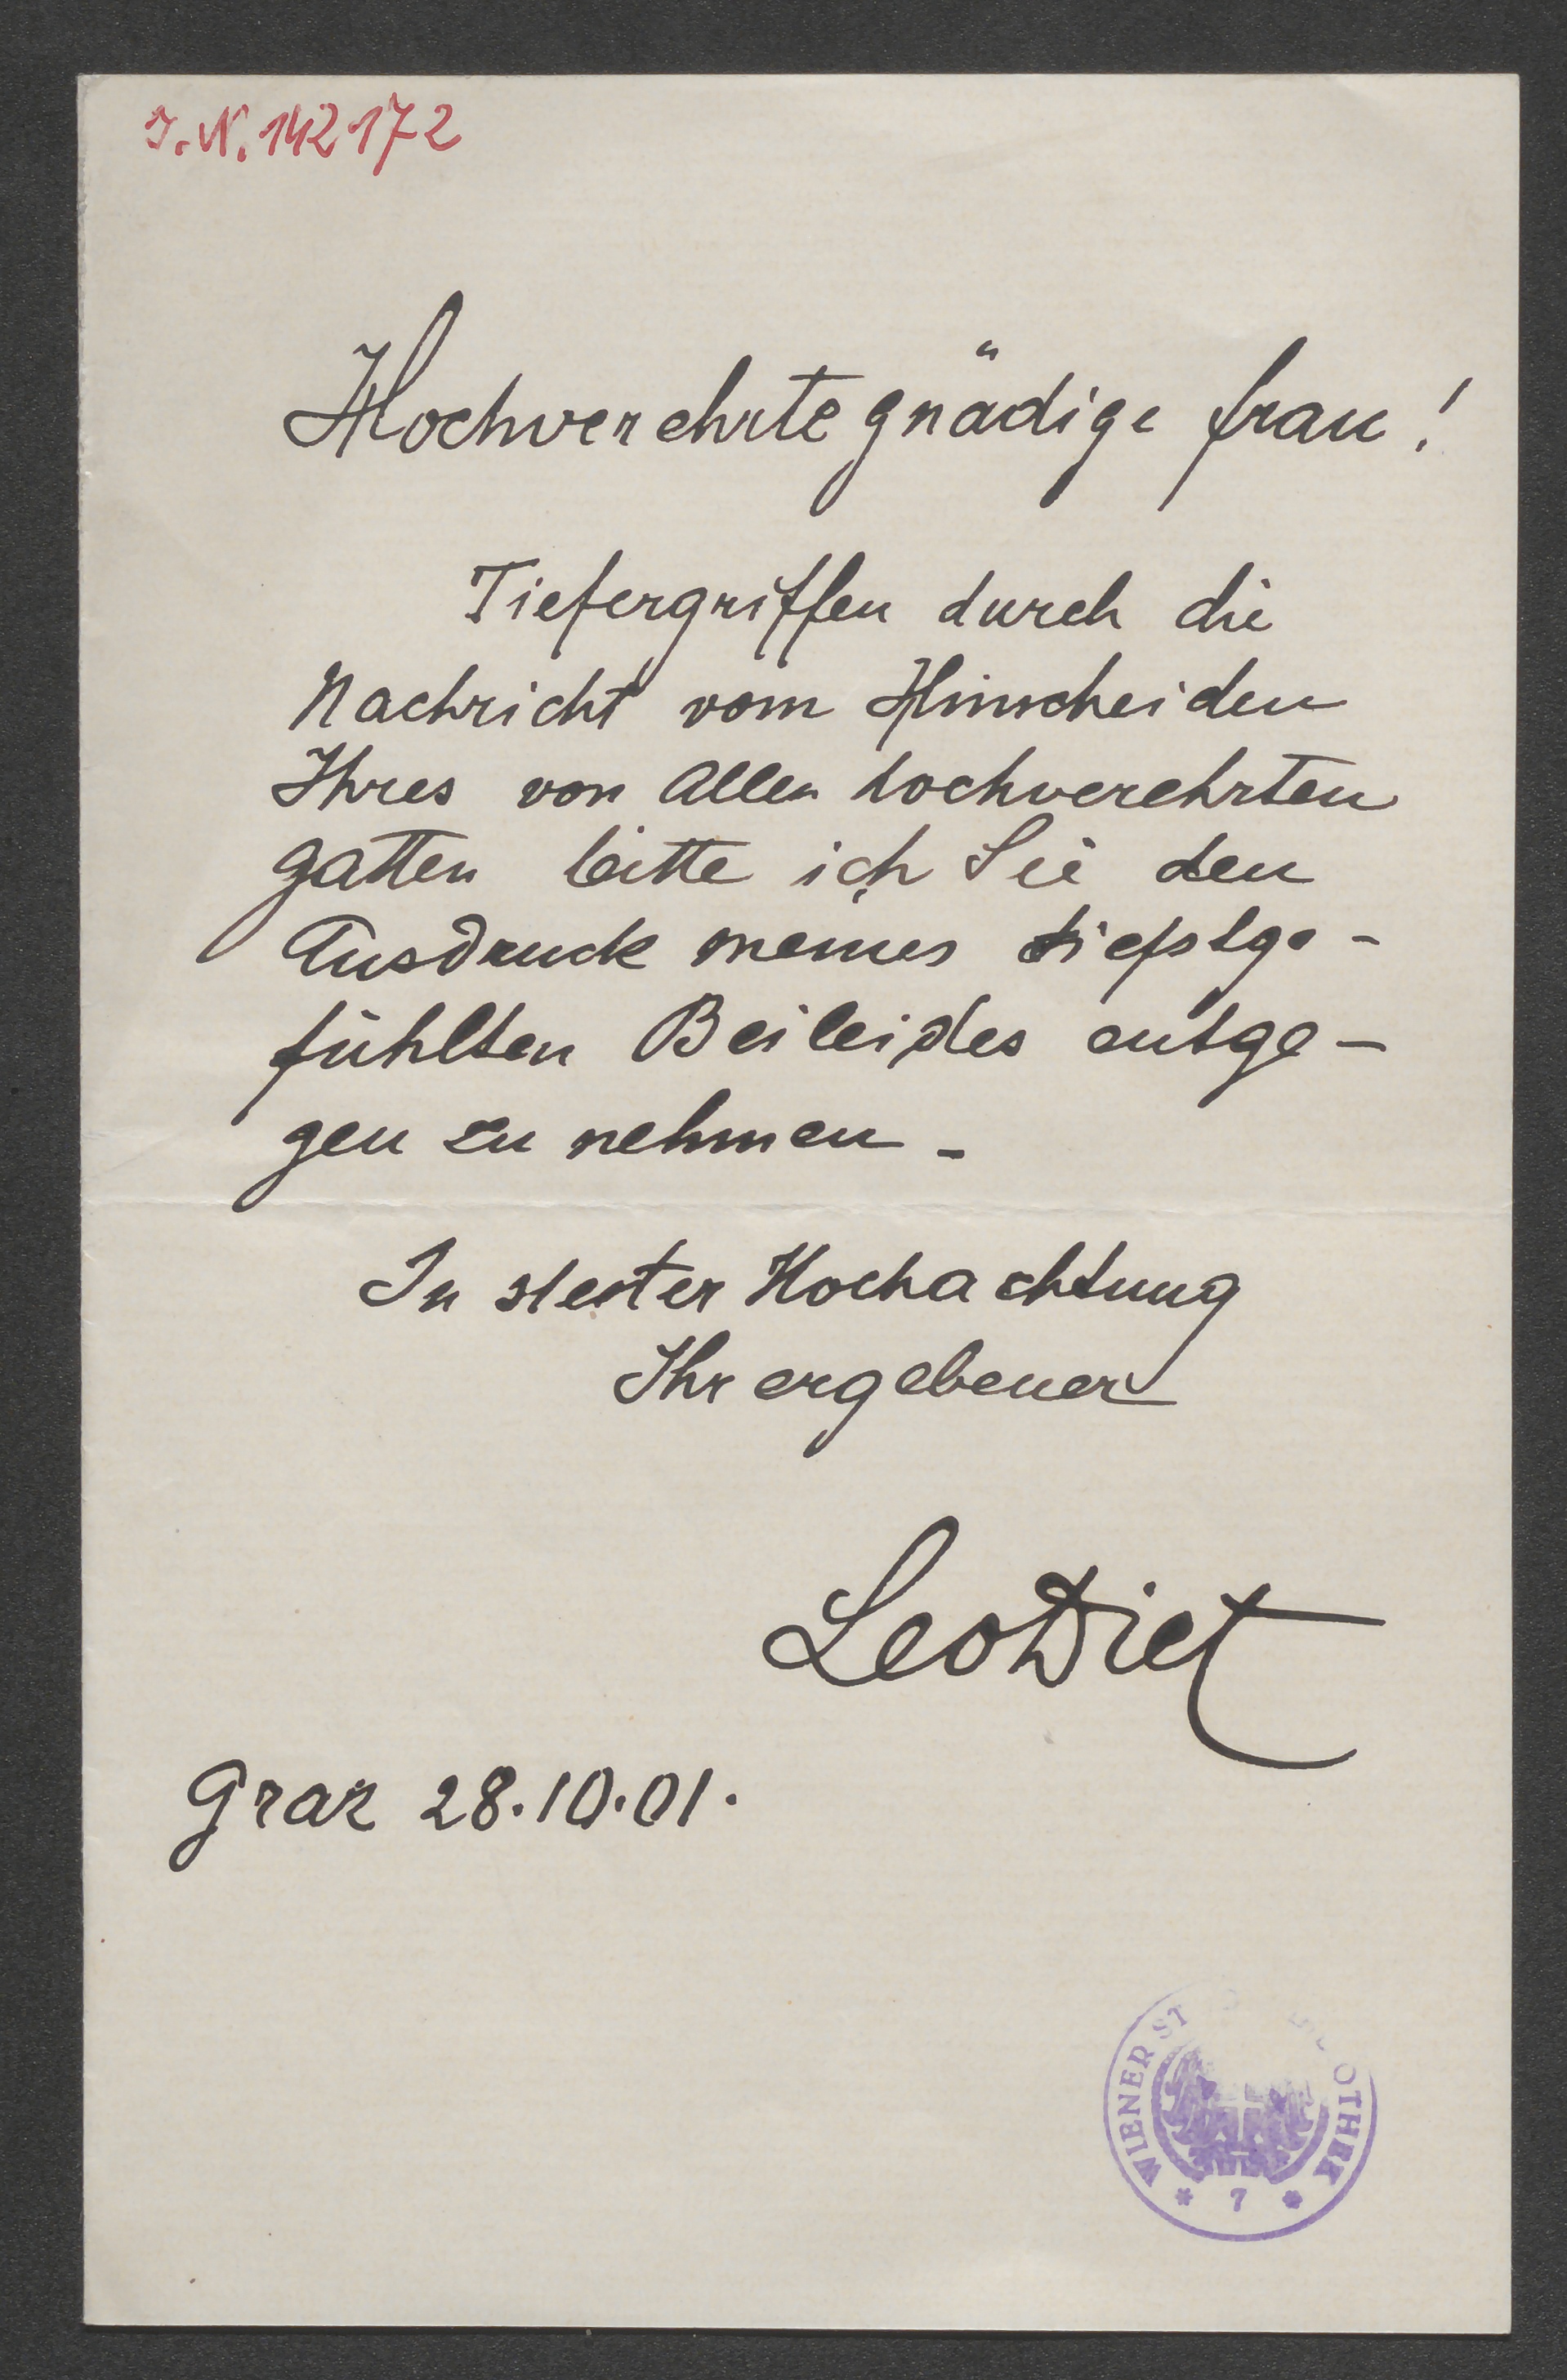 I.N. 142172
Hochverehrte gnädige Frau!
Tiefergriffen durch die
Nachricht vom Hinscheiden
Ihres von Allen hochverehrten
Gatten bitte ich Sie den
Ausdruck meines tiefstge-
fühlten Beileides entge-
gen zu nehmen -
In steter Hochachtung
Ihr ergebener
Leo Diet
Graz 28.10.01.
WIENER ST OTHEK
* 7 *